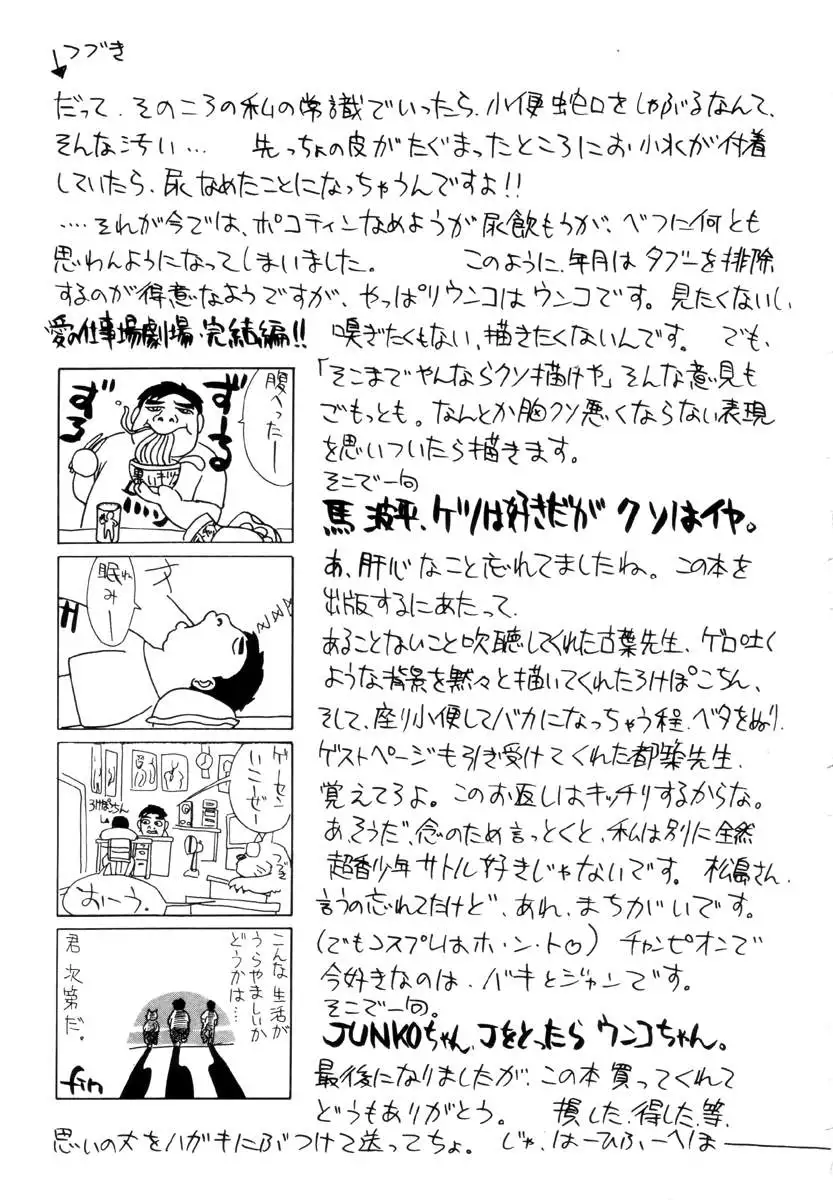 つづき
だって、そのころの私の常識でいったら、小便蛇口をしゃぶるなんて、
そんな汚い… 先っちょの皮がたぐまったところにお小水が付着
していたら、尿なめたことになっちゃうんですよ!!
‥‥それが今では、ポコティンなめようが尿飲もうが、べつに何とも
思わんようになってしまいました。 このように、年月はタブーを排除
するのが得意なようですが、やっぱりウンコはウンコです。見たくないし、
嗅ぎたくもない、描きたくないんです。 でも、
「そこまでやんならクソ描けや」そんな意見も
ごもっとも。なんとか胸クソ悪くならない表現
を思いついたら描きます。
そこで一句
馬 波平、ケツは好きだが クソはイヤ。
あ、肝心なこと忘れてましたね。この本を
出版するにあたって、
あることないこと吹聴してくれた古葉先生、ゲロ吐く
ような背景を黙々と描いてくれたろけぽこちん、
そして、座り小便してバカになっちゃう程、ベタをぬり、
ゲストページも引き受けてくれた都築先生、
覚えてろよ。このお返しはキッチリするからな。
あ、そうだ、念のため言っとくと、私は別に全然
超香少年サトル好きじゃないです。 松島さん、
言うの忘れてたけど、あれ、まちがいです。
(でもコスプレはホ・ン・ト♡) チャンピオンで
今好きなのは、バキとジャンです。
そこで一句。
JUNKOちゃん、Jをとったら ウンコちゃん。
最後になりましたが、この本買ってくれて
どうもありがとう。 損した、得した、等、
思いの丈をハガキにぶつけて送ってちょ。 じゃ、はーひふーへほ――
愛の仕事場劇場・完結編!!
腹へったー
ずるずーる
眠みー
ゲーセンいこーぜー
ろけぽちん
おーう。
こんな生活が
うらやましいか
どうかは…
君次第だ。
fin